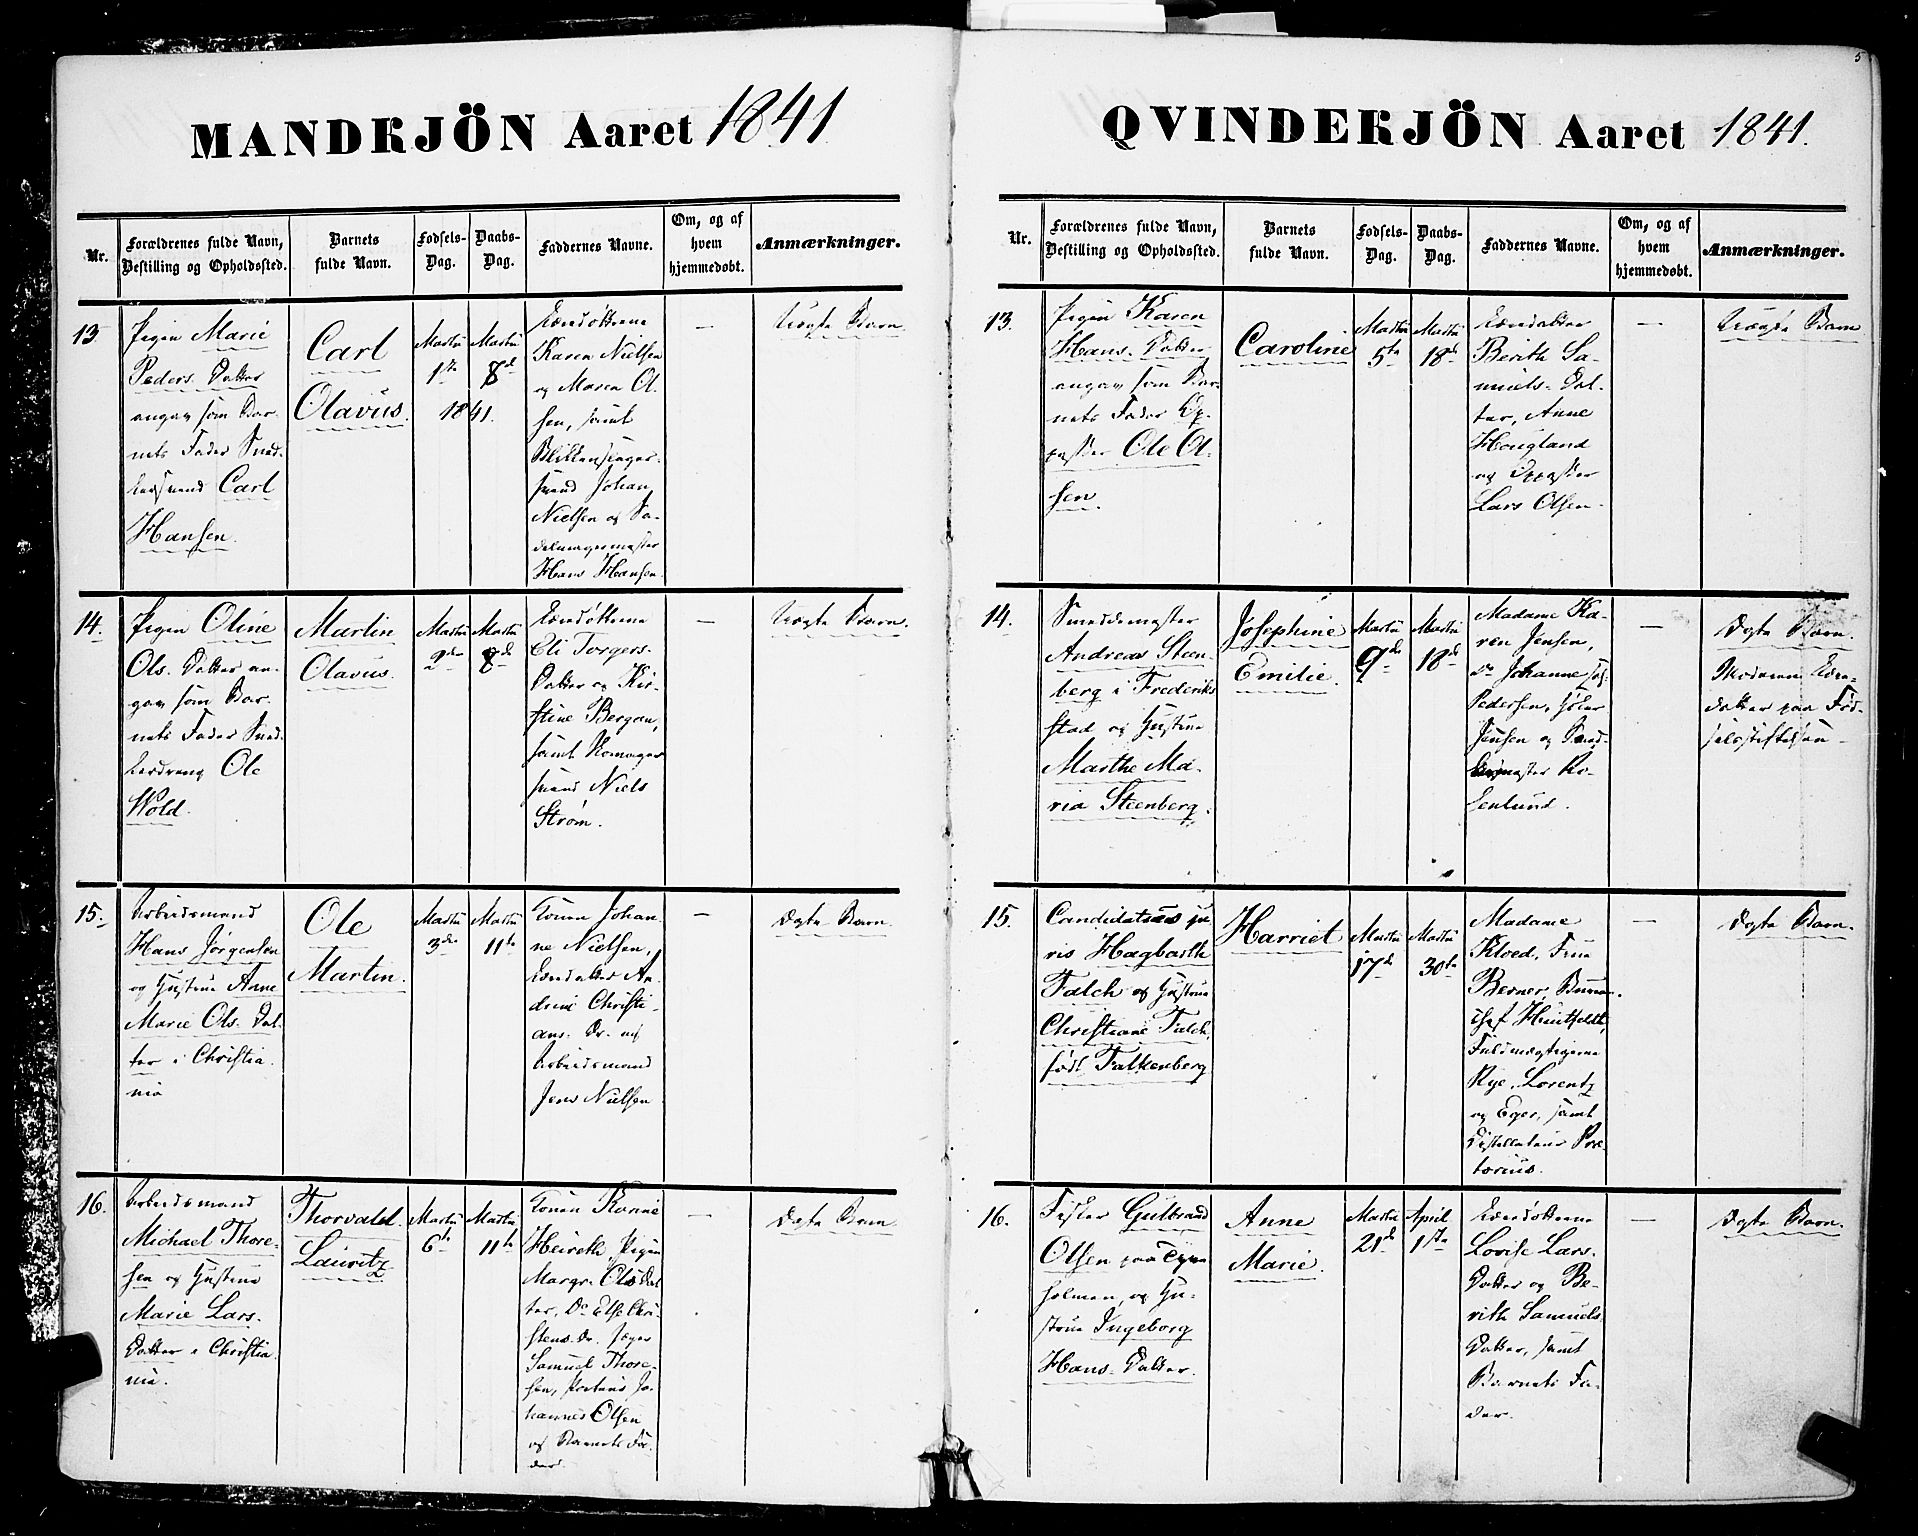 5
MANDKJÖN Aaret 1841
Nr.
Forældrenes fulde Navn,
Bestilling og Opholdssted.
Barnets
fulde Navn.
Fødsels-
Dag.
Daabs-
Dag.
Faddernes Navne.
Om, og af
hvem
hjemmedøbt.
Anmærkninger.
13.
Pigen Marie
Peders. Datter
angav som Bar-
nets Fader Sned-
kersvend Carl
Hansen.
Carl
Olavus.
Martii
1ste
Martii
8de
1841.
Karen Nielsen
og Maren Ol-
sen, samt
Blikkenslager-
svend Johan
Nielsen og Sa-
delmagermester
Hans Hansen.
—
Uægte Barn.
14.
Pigen Oline
Ols. Datter an-
gav som Bar-
nets Fader Sned-
kerdreng Ole
Wold.
Martin
Olavus.
Martii
2den
Martii
8de
Eli Torgers-
Datter og Kir-
stine Bergan,
samt
svend Niels
Strøm.
—
Uægte Barn.
15.
Arbeidsmand
Hans Jørgensen
og Hustrue Anne
Marie Ols. Dat-
ter i Christia
nia
Ole
Martin.
Martii
3die
Martii
11te
Konen Johan-
ne Nielsen,
An-
drine Christi-
ans. Dr. og
Arbeidsmand
Jens Nielsen
—
Ægte Barn.
16.
Arbeidsmand
Michael Thore-
sen og Hustrue
Marie Lars.
Datter i Christia
nia.
Thorvald
Lauritz
Martii
6te
Martii
11te
Konen
Pigen
Margr. Ols Dat
ter, Do Else Chri-
stens. Dr. Jæger
Samuel Thore-
sen, Jo-
hannes Olsen
og Barnets Fa-
der.
—
Ægte Barn.
QVINDERKJÖN Aaret 1841.
Nr.
Forældrenes fulde Navn,
Bestilling og Opholdssted.
Barnets
fulde Navn.
Fødsels-
Dag.
Daabs-
Dag.
Faddernes Navne.
Om, og af
hvem
hjemmedøbt.
Anmærkninger.
13.
Pigen Karen
Hans. Datter
angav som Bar-
nets Fader Op-
passer Ole Ol-
sen.
Caroline
Martii
5te
Martii
18de
Berith Sa-
muels-Dat-
ter, Anne
Hougland
og Oppasser
Lars Olsen.
—
Uægte Barn
14.
Smeddemester
Andreas Steen-
berg i Frederiks
stad og Hustrue
Marthe Ma-
ria Steenberg.
Josephine
Emilie.
Martii
9de
Martii
18de
Madame Ka-
ren Jensen,
Do Johanne
Pedersen,
Jensen og Sned-
kermester Ro-
senlund.
—
Ægte Barn.
Moderen
paa Fød-
selsstiftelsen.
15.
Candidatus ju-
ris Hagbarth
Falch og Hustrue
Christiane Falch,
født Falkenberg
Harriet
Martii
17de
Martii
30te
Madame
Kloed, Frue
Berner, Bureau-
chef Huitfeldt,
Fuldmægtigerne
Rye, Lorentz
og Eger, samt
Destillateur Præ-
torius.
—
Ægte Barn.
16.
Fisker Gulbrand
Olsen paa
holmen, og Hu-
strue Ingeborg
Hans. Datter.
Anne
Marie.
Martii
21de
April
1ste
Lovise Lars.
Datter og Be-
rith Samuels
Datter, samt
Barnets Fa-
der.
—
Ægte Barn.